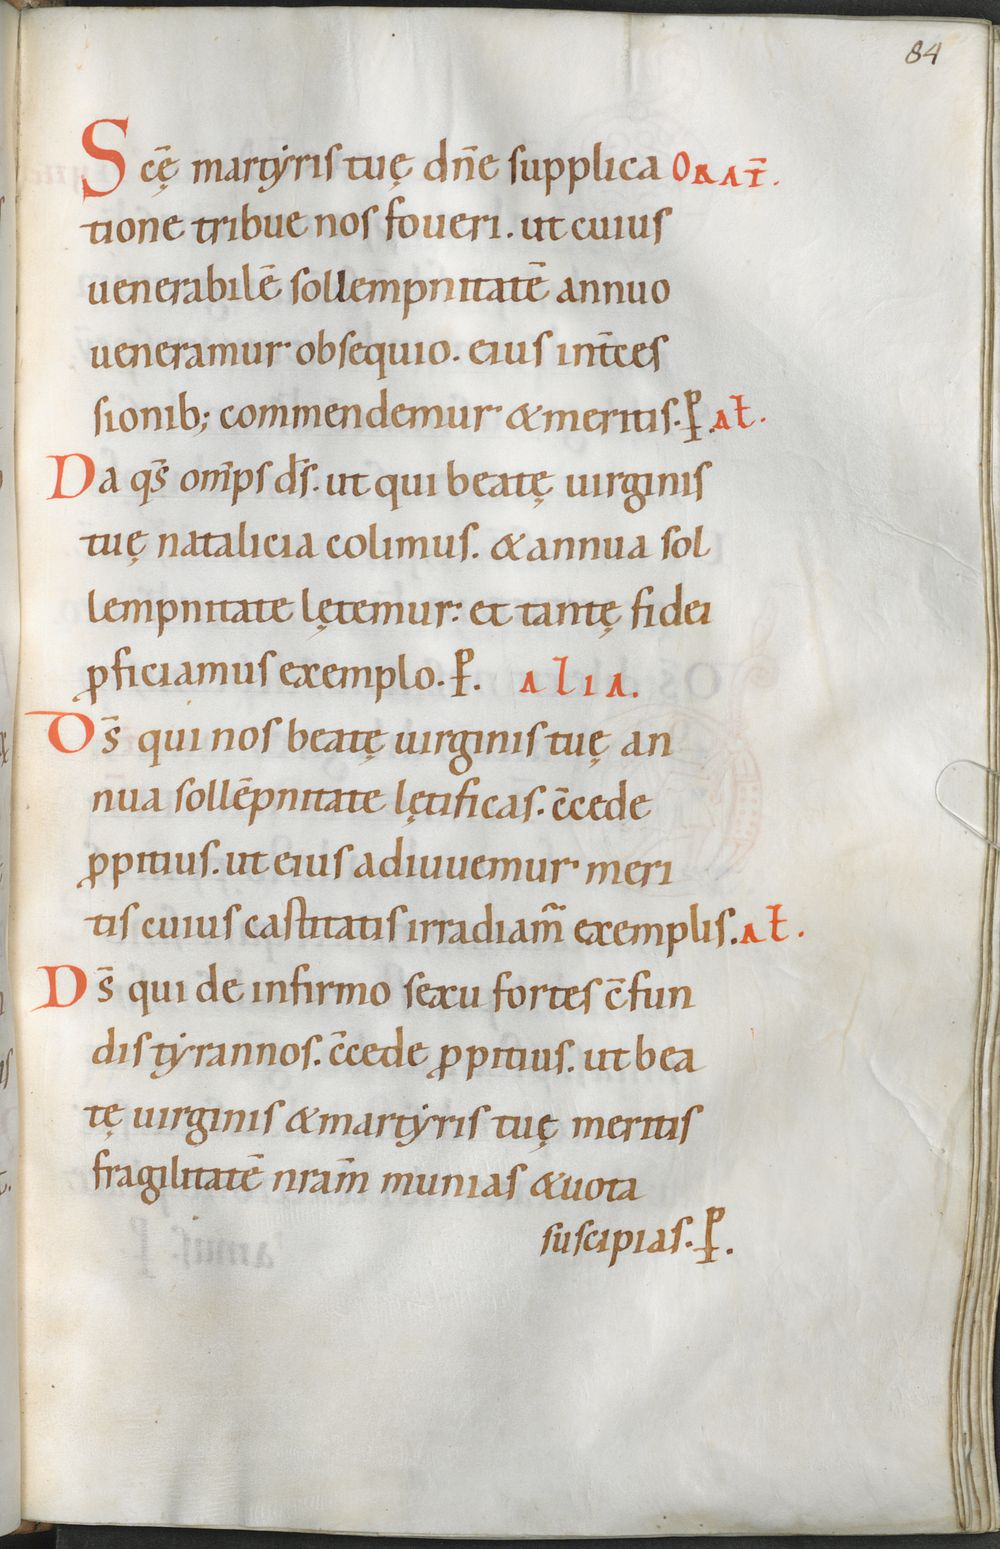 84
Scę̄ martẏris tuę dn̄e supplica ORAT̄.
tione tribue nos foueri. ut cuius
uenerabilē sollempnitatē annuo
ueneramur obsequio. eius int̄ces
sionib; commendemur & meritis. P. Ał.
Da qs̄ om̄ps ds̄. ut qui beatę uirginis
tuę natalicia colimus. & annua sol
lempnitate lętemur: et tantę fidei
ꝓficiamus exemplo. P. ALIA.
Ds̄ qui nos beatę uirginis tuę an
nua sollēpnitate lętificas. c̄cede
ꝓpitius. ut eius adiuuemur meri
tis cuius castitatis irradiam̄ exemplis. Ał.
Ds̄ qui de infirmo sexu fortes c̄fun
dis tẏrannos. c̄cede ꝓpitius. ut bea
tę uirginis & martẏris tuę meritis
fragilitatē nram̄ munias & uota
suscipias. P.